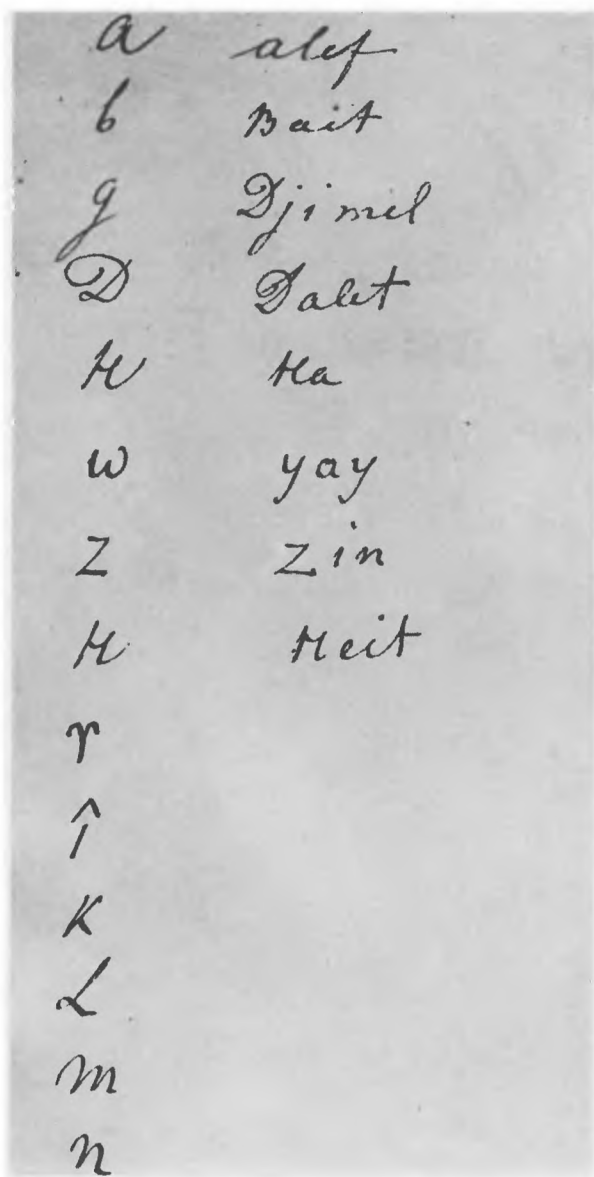 a alef
b Bait
g Djimel
D Dalet
H Ha
w yay
Z Zin
H Heit
r
î
K
L
m
n